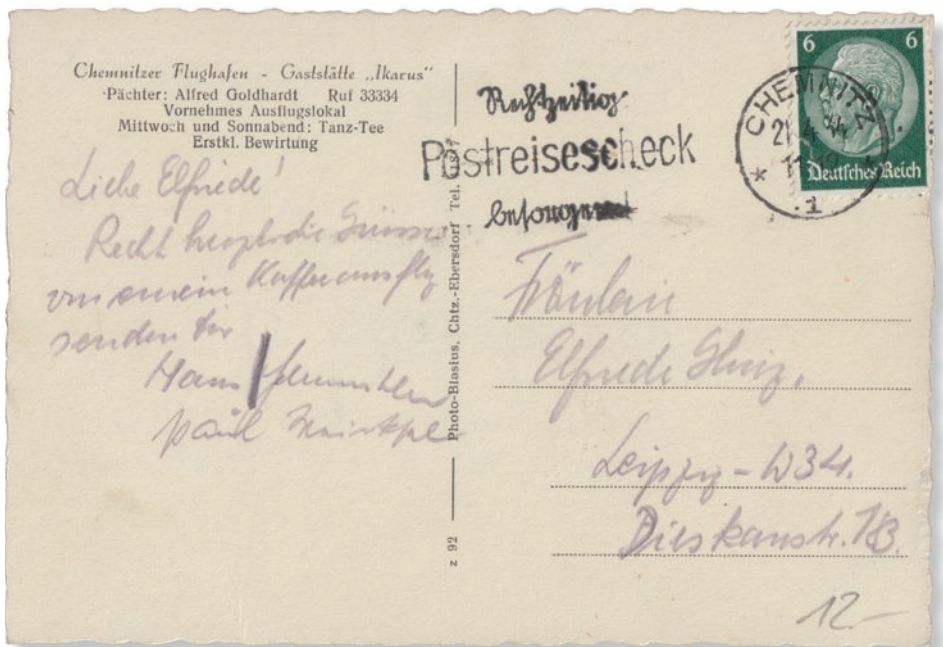 Chemnitzer Flughafen - Gaststätte „Ikarus“
Pächter: Alfred Goldhardt Ruf 33334
Vornehmes Ausflugslokal
Mittwoch und Sonnabend: Tanz-Tee
Erstkl. Bewirtung
Liebe Elfriede!
Recht herzliche Grüsse
von einem Kaffeeausflug
senden Dir
Hans
Paul
Photo-Blasius, Chtz.-Ebersdorf Tel.
z 92
Rechtzeitig
Postreisescheck
besorgen
CHEMNITZ
1
6 6
Deutsches Reich
Fräulein
Elfriede
Leipzig - W 34.
Dieskaustr.
12.-